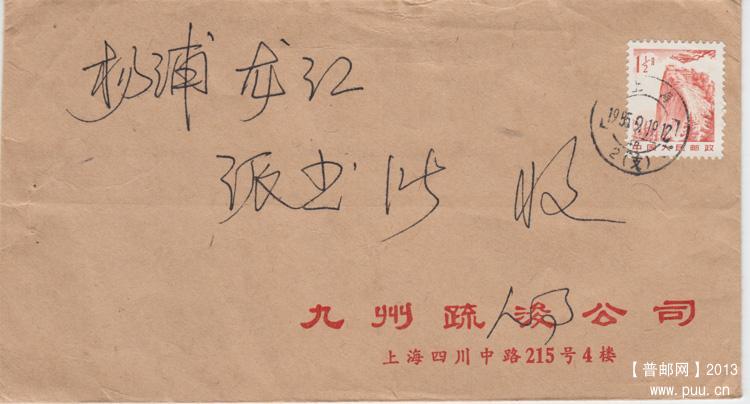 杨浦龙江
张书 收
1½分
中国人民邮政
上海
1985.9.19.12
2(支)
九州疏浚公司
上海四川中路215号4楼
【普邮网】2013
www.puu.cn